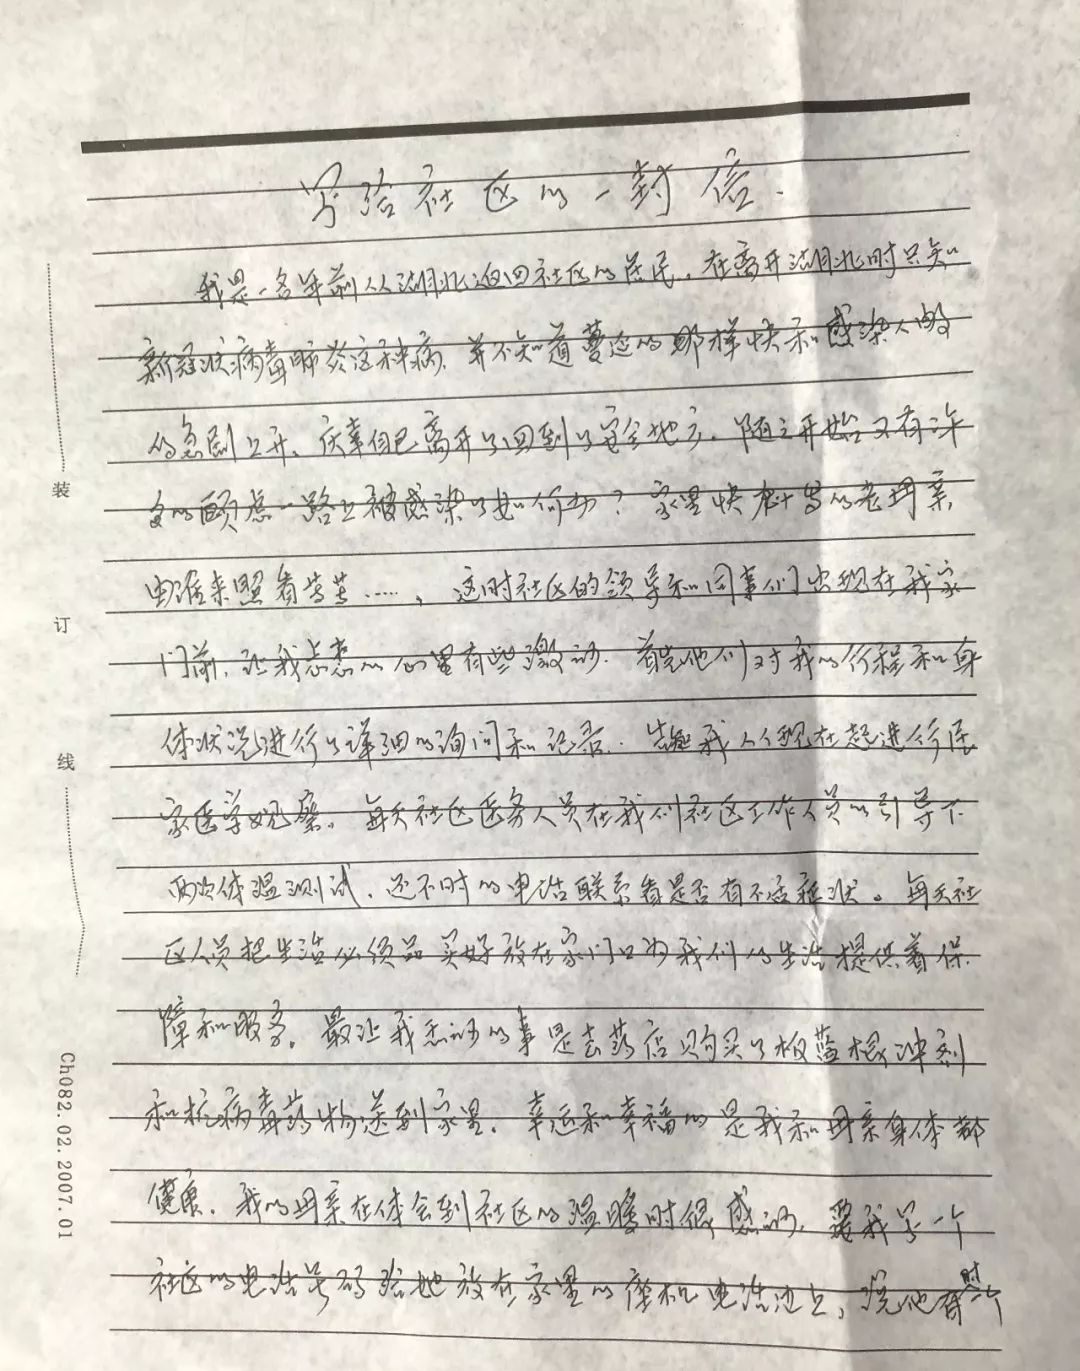 写给社区的一封信.
我是一名年前从湖北返回社区的居民,在离开湖北时只知
新冠状病毒肺炎这种病,并不知道蔓延的那样快和感染人数
的急剧上升、庆幸自己离开了回到了安全地方.随之开始又有许
多的顾虑一路上被感染了如何办?家里快九十岁的老母亲
由谁来照看等等……,这时社区的领导和同事们出现在我家
门前,让我忐忑的心里有些激动.首先他们对我的行程和身
体状况进行了详细的询问和记录.告知我从现在起进行居
家医学观察。每天社区医务人员在我们社区工作人员的引导下
两次体温测试,还不时的电话联系看是否有不适症状。每天社
区人员把生活必须品买好放在家门口为我们的生活提供着保
障和服务。最让我感动的事是去药店购买了板蓝根冲剂
和抗病毒药物送到家里.幸运和幸福的是我和母亲身体都
健康.我的母亲在体会到社区的温暖时很感动.要我写一个
社区的电话号码给她放在家里的座机电话边上,说他有时
装
订
线
Ch082.02.2007.01